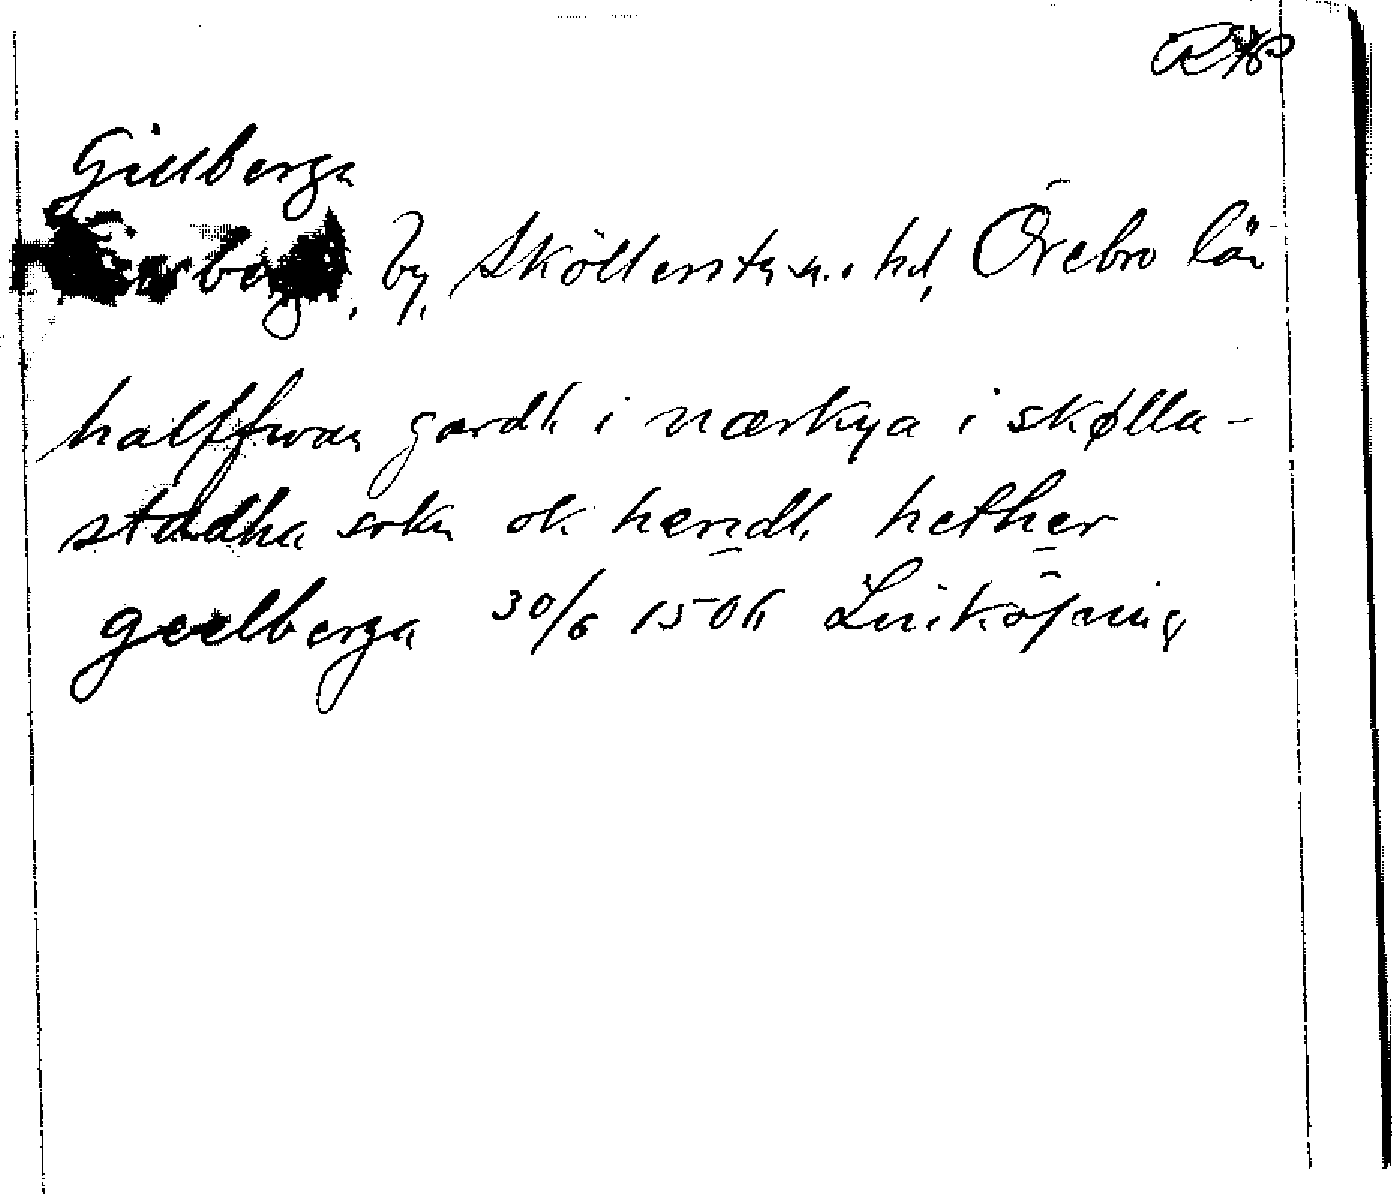 Gillberga
by, Sköllersta sn. o hd, Örebro län
halffwan gardh i nærkya i skølla-
stadha sokn ok hæridh hether
geelberga 30/6 1504 Linköping